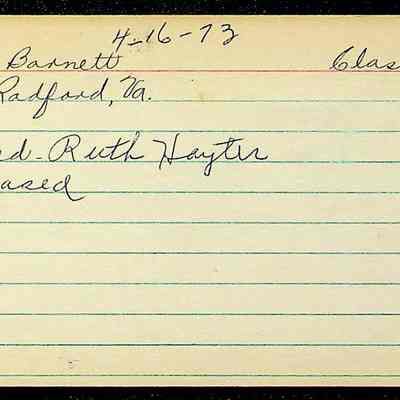 4-16-73
Barnett Clas
Radford, Va.
ed - Ruth Hayter
ased